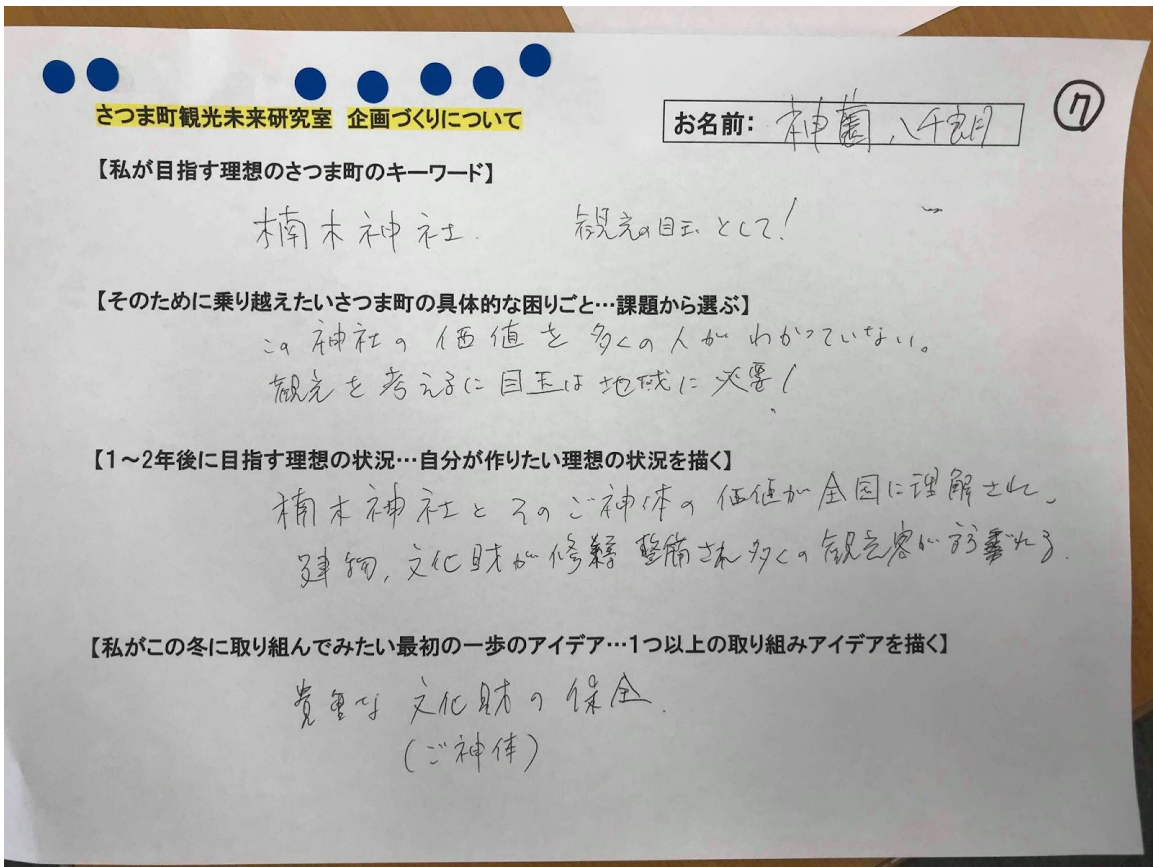 さつま町観光未来研究室 企画づくりについて
お名前: 神薗 八千
⑦
【私が目指す理想のさつま町のキーワード】
楠木神社. 観光の目玉として!
【そのために乗り越えたいさつま町の具体的な困りごと…課題から選ぶ】
この神社の価値を多くの人がわかっていない。
観光を考えるに目玉は地域に必要!
【1～2年後に目指す理想の状況…自分が作りたい理想の状況を描く】
楠木神社とそのご神体の価値が全国に理解され、
建物,文化財が修繕整備され多くの観光客が訪れる.
【私がこの冬に取り組んでみたい最初の一歩のアイデア…1つ以上の取り組みアイデアを描く】
貴重な文化財の保全.
(ご神体)